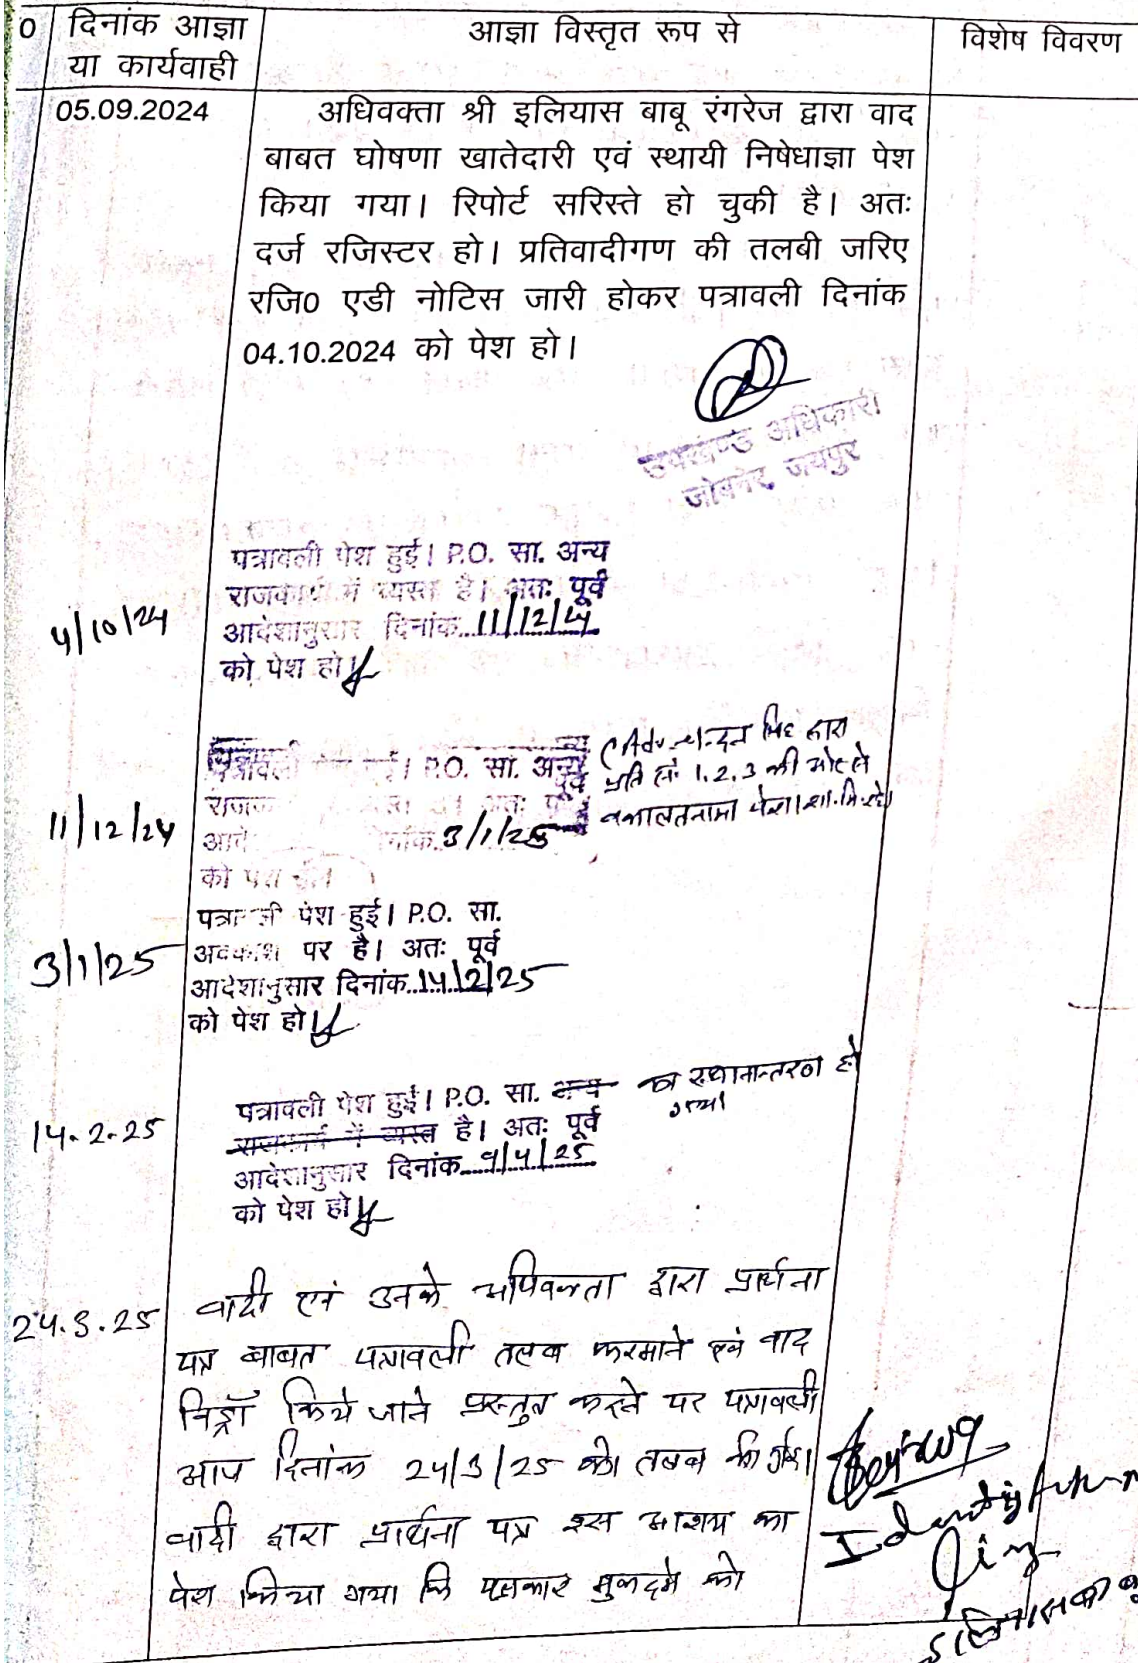 0 दिनांक आज्ञा या कार्यवाही
आज्ञा विस्तृत रूप से
विशेष विवरण
05.09.2024
अधिवक्ता श्री इलियास बाबू रंगरेज द्वारा वाद
बाबत घोषणा खातेदारी एवं स्थायी निषेधाज्ञा पेश
किया गया। रिपोर्ट सरिस्ते हो चुकी है। अतः
दर्ज रजिस्टर हो। प्रतिवादीगण की तलबी जरिए
रजि0 एडी नोटिस जारी होकर पत्रावली दिनांक
04.10.2024 को पेश हो।
उपखण्ड अधिकारी
जोबनेर, जयपुर
4/10/24
पत्रावली पेश हुई। P.O. सा. अन्य
राजकार्य में व्यस्त है। अतः पूर्व
आदेशानुसार दिनांक 11/12/24
को पेश हो।
11/12/24
पत्रावली P.O. सा. अन्य
अतः पूर्व
3/1/25
को पेश
Adv. चन्दन सिंह द्वारा
प्रति सं 1,2,3 की ओर से
वकालतनामा पेश। शा.मि. हो।
3/1/25
पत्रावली पेश हुई। P.O. सा.
अवकाश पर है। अतः पूर्व
आदेशानुसार दिनांक 14/2/25
को पेश हो।
14.2.25
पत्रावली पेश हुई। P.O. सा. अन्य का स्थानान्तरण हो
गया
राजकार्य में व्यस्त है। अतः पूर्व
आदेशानुसार दिनांक 9/4/25
को पेश हो।
24.3.25
वादी एवं उनके अधिवक्ता द्वारा प्रार्थना
पत्र बाबत पत्रावली तलब फरमाने एवं वाद
विड्रॉ किये जाने प्रस्तुत करने पर पत्रावली
आज दिनांक 24/3/25 को तलब की गई।
वादी द्वारा प्रार्थना पत्र इस आशय का
पेश किया गया कि पक्षकार मुकदमे को